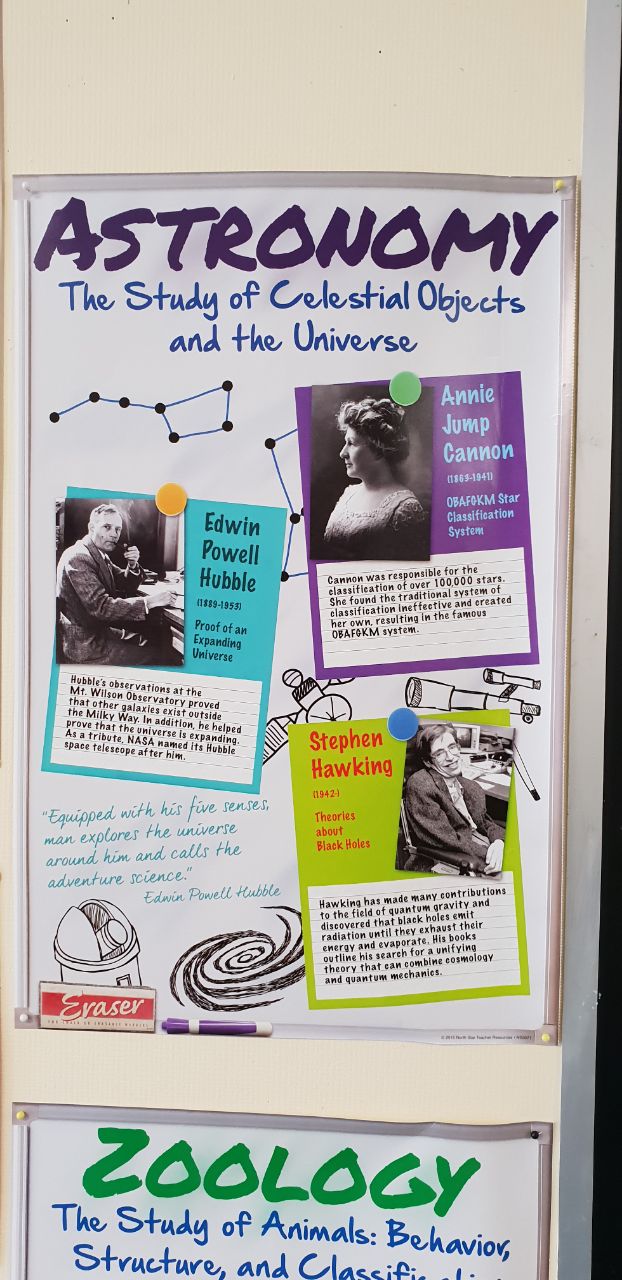 ASTRONOMY
The Study of Celestial Objects
and the Universe
Annie
Jump
Cannon
(1863-1941)
OBAFGKM Star
Classification
System
Cannon was responsible for the
classification of over 100,000 stars.
She found the traditional system of
classification ineffective and created
her own, resulting in the famous
OBAFGKM system.
Edwin
Powell
Hubble
(1889-1953)
Proof of an
Expanding
Universe
Hubble's observations at the
Mt. Wilson Observatory proved
that other galaxies exist outside
the Milky Way. In addition, he helped
prove that the universe is expanding.
As a tribute, NASA named its Hubble
space telescope after him.
Stephen
Hawking
(1942-)
Theories
about
Black Holes
Hawking has made many contributions
to the field of quantum gravity and
discovered that black holes emit
radiation until they exhaust their
energy and evaporate. His books
outline his search for a unifying
theory that can combine cosmology
and quantum mechanics.
"Equipped with his five senses,
man explores the universe
around him and calls the
adventure science."
Edwin Powell Hubble
Eraser
North Star Teacher Resources
ZOOLOGY
The Study of Animals: Behavior,
Structure, and